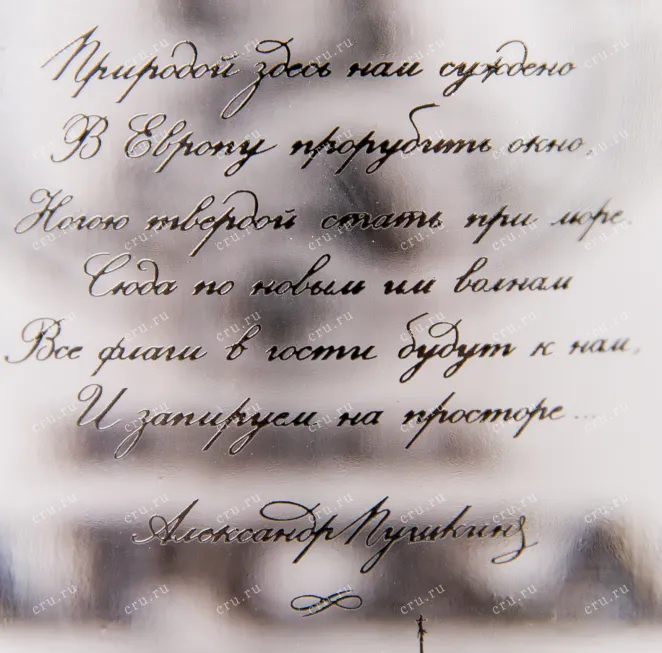 Природой здесь нам суждено
В Европу прорубить окно,
Ногою твёрдой стать при море.
Сюда по новым им волнам
Все флаги в гости будут к нам,
И запируем на просторе...
Александр Пушкинъ
cru.ru